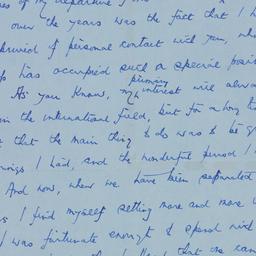 of my departure
over the years was the fact that I h
deprived of personal contact with you, who
has occupied such a special posit
As you know, my primary interest will alwa
in the international field, but for a long t
that the main thing to do was to be g
I had, and the wonderful period I
And now, when we have been separated
I find myself getting more and more
I was fortunate enough to spend
that one can